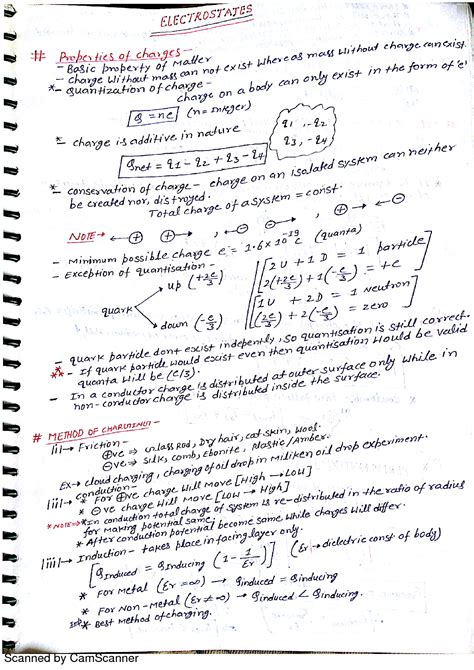 ELECTROSTATES
# Properties of charges -
- Basic property of Matter
- Charge Without mass can not exist Where as mass Without charge can exist.
*- Quantization of charge -
charge on a body can only exist in the form of 'e'
Q = ne (n = Integer)
q1, -q2
q3, -q4
*- charge is additive in nature
Qnet = q1 - q2 + q3 - q4
*- conservation of charge - charge on an isolated system can neither
be created nor, distroyed.
Total charge of a system = const.
NOTE → ← ⊕ ⊕ → , ⊖ → ← ⊖ , ⊕ → ← ⊖
- Minimum possible charge e = 1.6 × 10^-19 c (quanta)
- Exception of quantisation -
quark
up (+2e/3)
down (-e/3)
2U + 1D = 1 particle
2(+2e/3) + 1(-e/3) = +e
1U + 2D = 1 neutron
(2e/3) + 2(-e/3) = zero
- quark particle dont exist indepently, so quantisation is still correct.
** - If quark particle Would exist even then quantisation Would be valid
quanta Will be (e/3).
- In a conductor charge is distributed at outer surface only While in
non-conductor charge is distributed inside the surface.
# METHOD OF CHARGING -
(i) → Friction -
⊕ve ⇒ Glass Rod, Dry hair, cat skin, Wool.
⊖ve ⇒ Silk, comb, Ebonite, Plastic/Amber.
Ex → cloud charging, charging of oil drop in Miliken oil drop experiment.
(ii) → conduction -
* For ⊕ve charge Will move [High → Low]
* For ⊖ve charge Will Move [Low → High]
* NOTE ⇒ * In conduction total charge of system is re-distributed in the ratio of radius
for Making potential same.
* After conduction potential become same While charges Will differ.
(iii) → Induction - takes place in facing layer only.
[QInduced = QInducing (1 - 1/Er)] (Er → dielectric const. of body)
* For Metal (Er = ∞) → QInduced = QInducing
* For Non-Metal (Er ≠ ∞) → QInduced < QInducing
* Best Method of charging.
Scanned by CamScanner